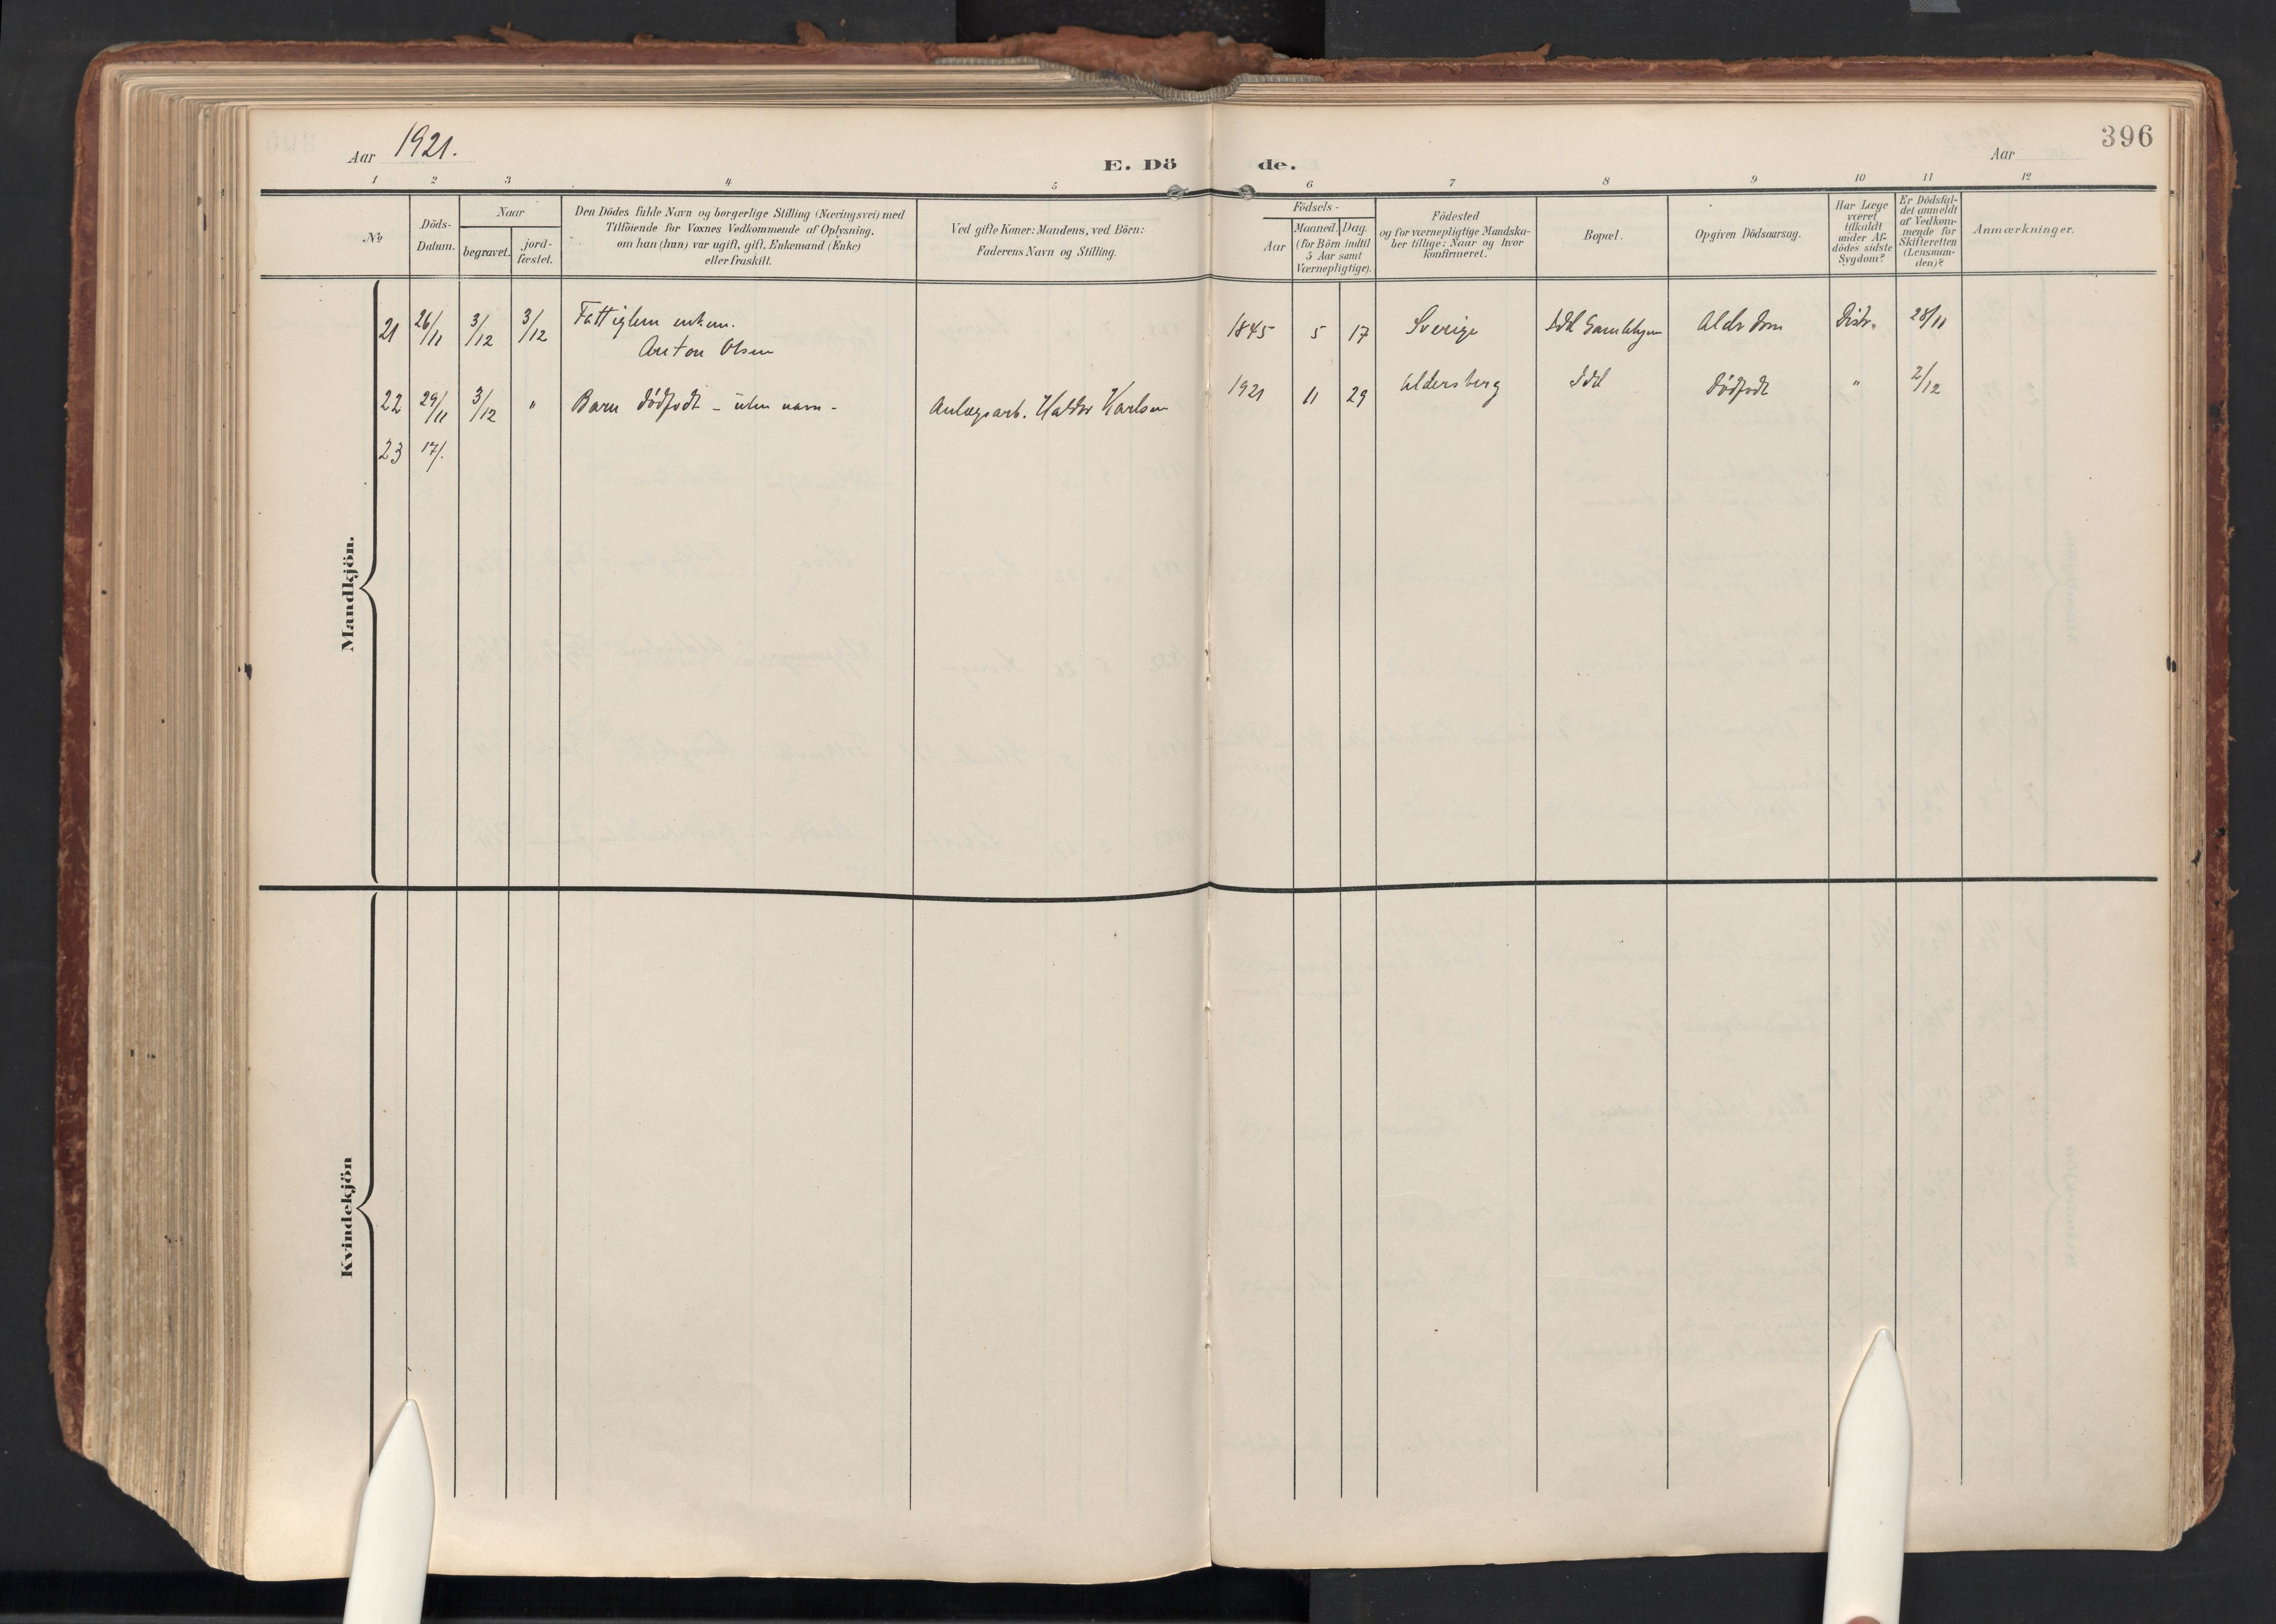 396
Aar 1921.
E. Dö de.
Aar
1 2 3 4 5 6 7 8 9 10 11 12
No
Döds-
Datum.
Naar
begravet.
jord-
fæstet.
Den Dödes fulde Navn og borgerlige Stilling (Næringsvei) med
Tilföiende for Voxnes Vedkommende af Oplysning,
om han (hun) var ugift, gift, Enkemand (Enke)
eller fraskilt.
Ved gifte Koner: Mandens, ved Börn:
Faderens Navn og Stilling.
Födsels-
Aar
Maaned. Dag.
(for Börn indtil
5 Aar samt
Værnepligtige).
Födested
og for værnepligtige Mandska-
ber tillige: Naar og hvor
konfirmeret.
Bopæl.
Opgiven Dödsaarsag.
Har Læge
været
tilkaldt
under Af-
dödes sidste
Sygdom?
Er Dödsfal-
det anmeldt
af Vedkom-
mende for
Skifteretten
(Lensman-
den)?
Anmærkninger.
Mandkjön.
21 26/11 3/12 3/12 Fattiglem enkem. 1845 5 17 Sverige Idd Alderdom Distr. 28/11
Anton Olsen
22 29/11 3/12 " Barn dödfödt - uten navn - Anlægsarb. Haldor Karlsen 1921 11 29 Aldersberg Idd dödfödt " 2/12
23 17/.
Kvindekjön